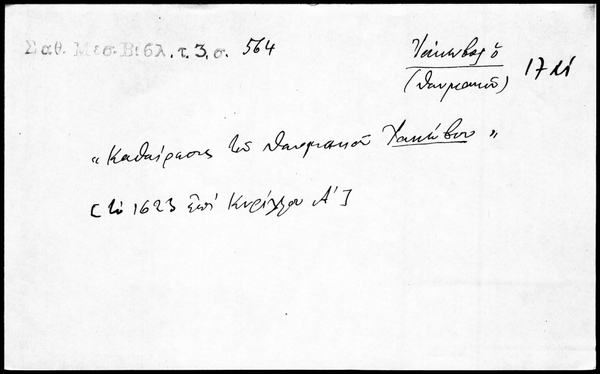 Σαθ. Μεσ. Βιβλ. τ. 3, σ. 564
Ἰάκωβος ὁ
(Θαυμακοῦ) 17 αἰ
“Καθαίρεσις τοῦ Θαυμακοῦ Ἰακώβου”
[τὸ 1623 ἐπὶ Κυρίλλου Α΄]